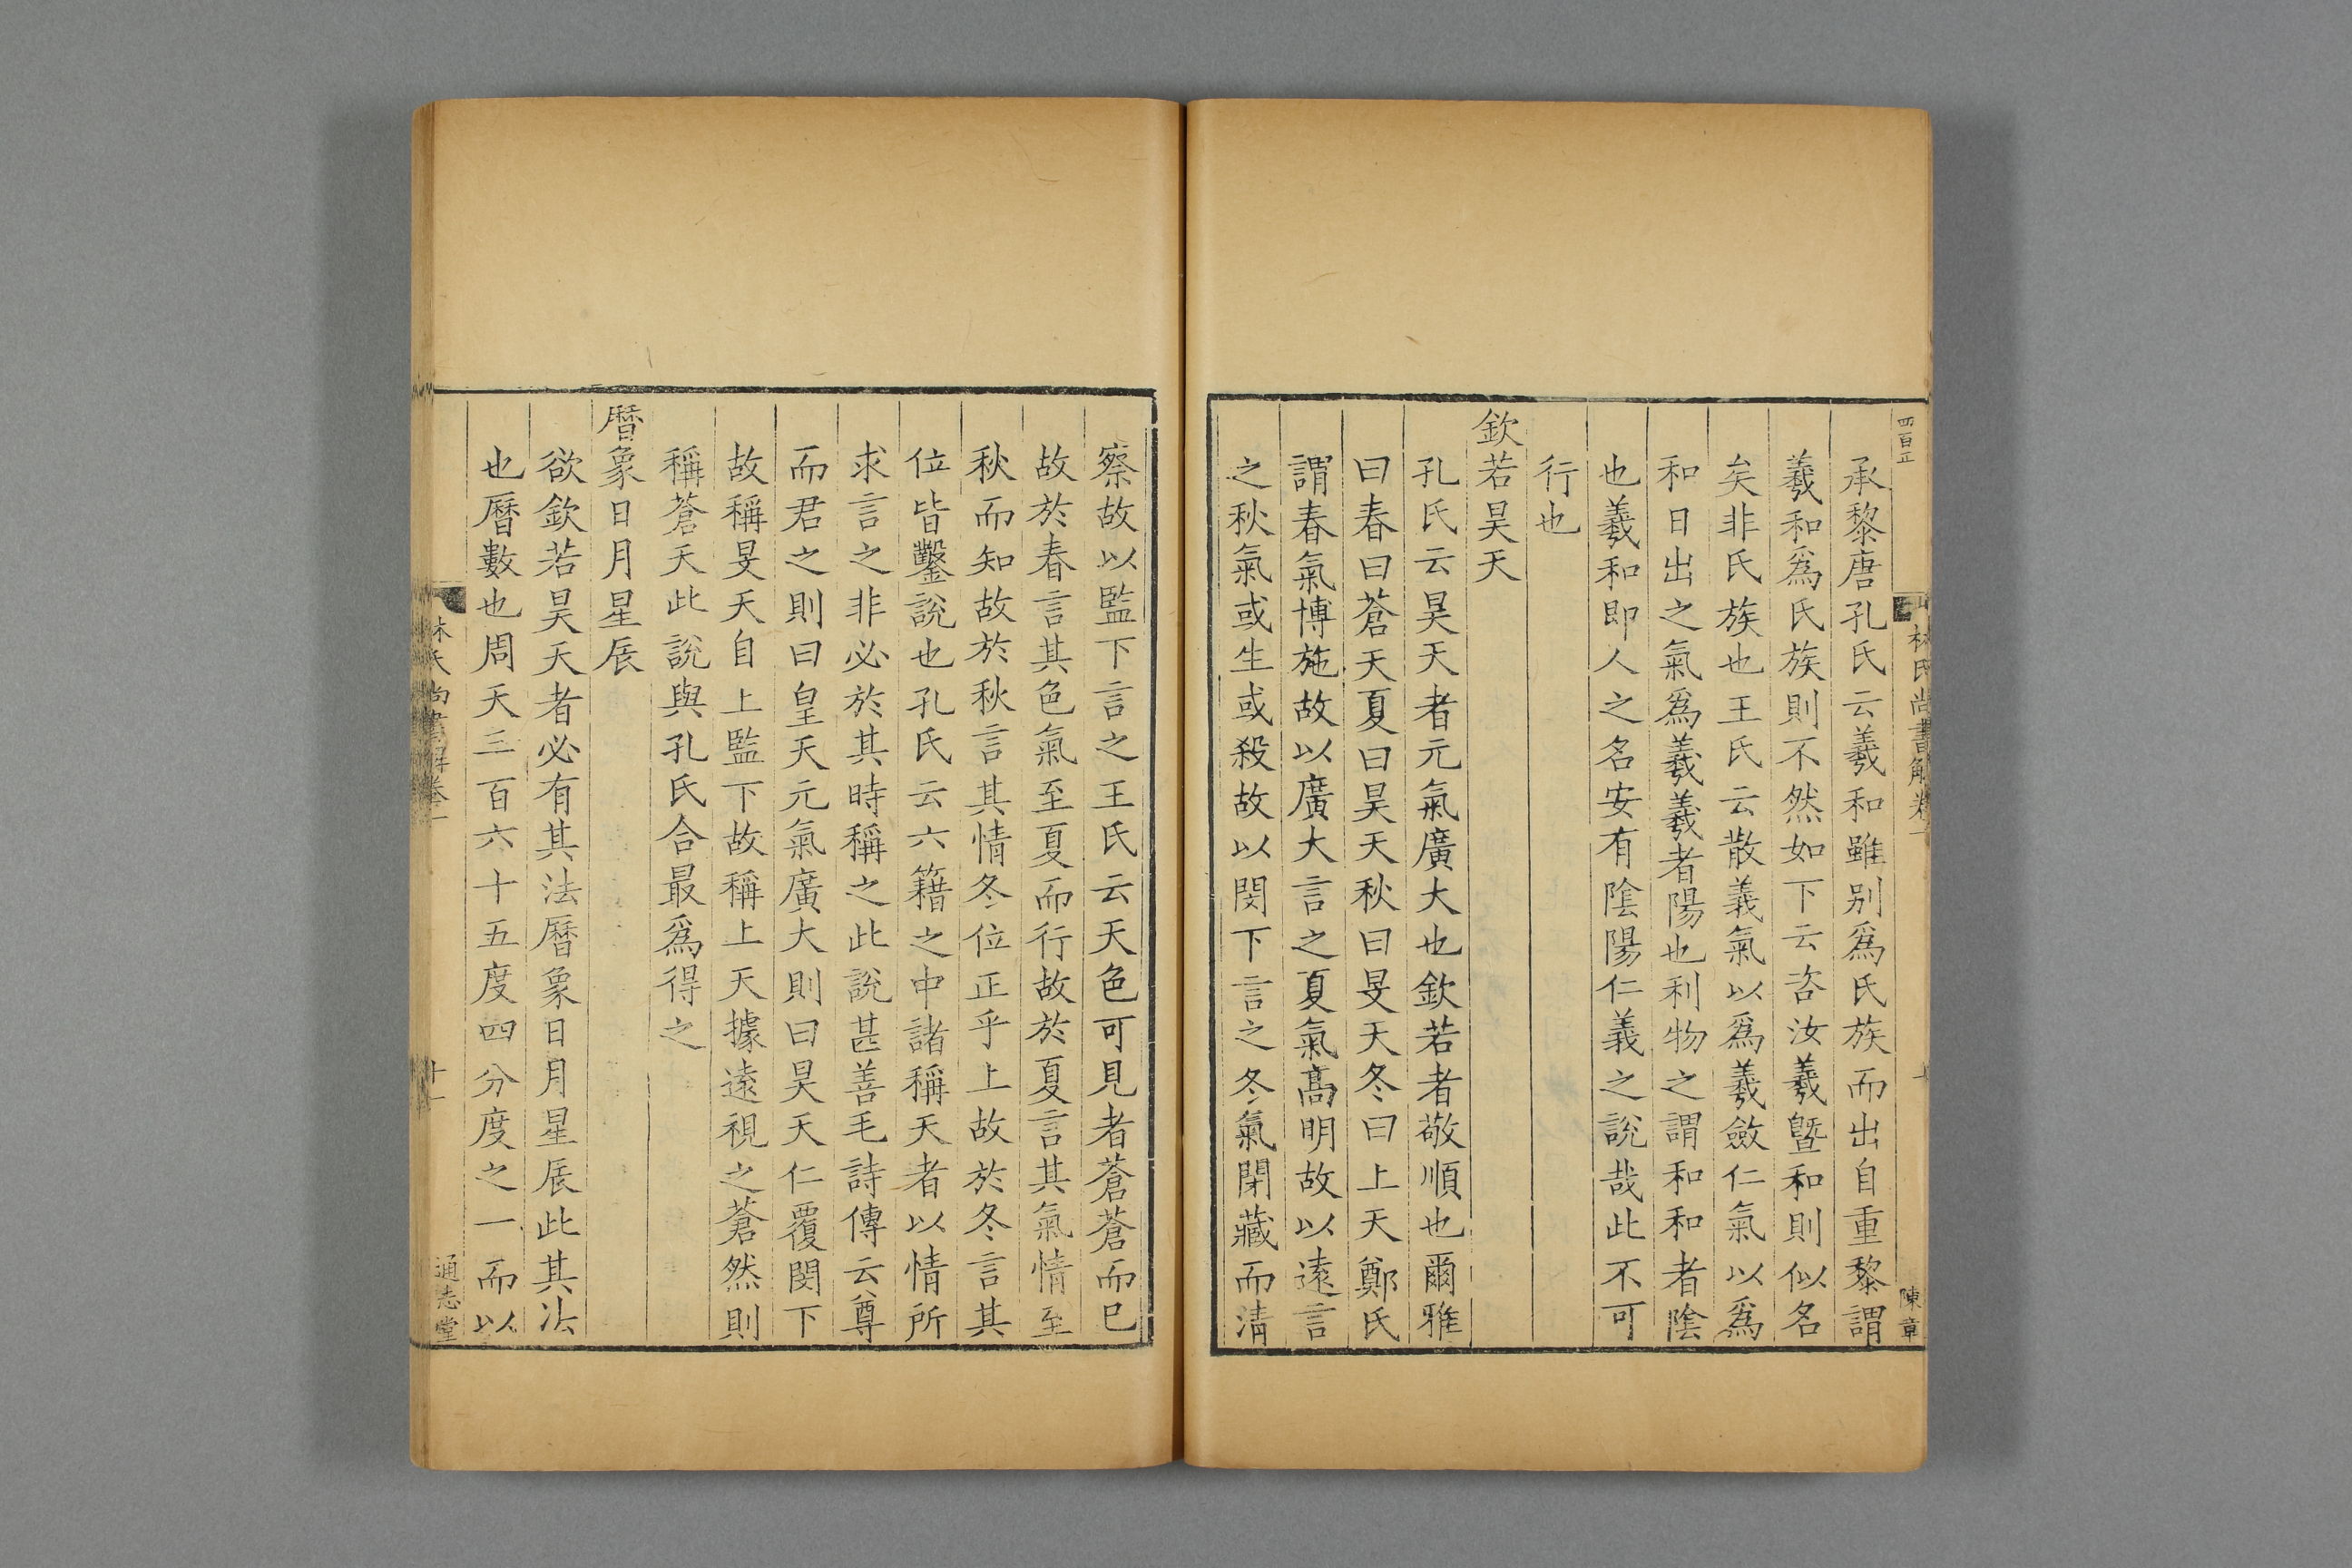 四百五
林氏尚書解卷一
陳章
承黎唐孔氏云羲和雖别爲氏族而出自重黎謂
羲和爲氏族則不然如下云咨汝羲曁和則似名
矣非氏族也王氏云散義氣以爲羲斂仁氣以爲
和日出之氣爲羲羲者陽也利物之謂和和者陰
也羲和即人之名安有陰陽仁義之說哉此不可
行也
欽若昊天
孔氏云昊天者元氣廣大也欽若者敬順也爾雅
曰春曰蒼天夏曰昊天秋曰旻天冬曰上天鄭氏
謂春氣博施故以廣大言之夏氣髙明故以遠言
之秋氣或生或殺故以閔下言之冬氣閉藏而淸
察故以監下言之王氏云天色可見者蒼蒼而已
故於春言其色氣至夏而行故於夏言其氣情至
秋而知故於秋言其情冬位正乎上故於冬言其
位皆鑿說也孔氏云六籍之中諸稱天者以情所
求言之非必於其時稱之此說甚善毛詩傳云尊
而君之則曰皇天元氣廣大則曰昊天仁覆閔下
故稱旻天自上監下故稱上天據遠視之蒼然則
稱蒼天此說與孔氏合最爲得之
曆象日月星辰
欲欽若昊天者必有其法曆象日月星辰此其法
也曆數也周天三百六十五度四分度之一而以
林氏尚書解卷一
十一
通志堂